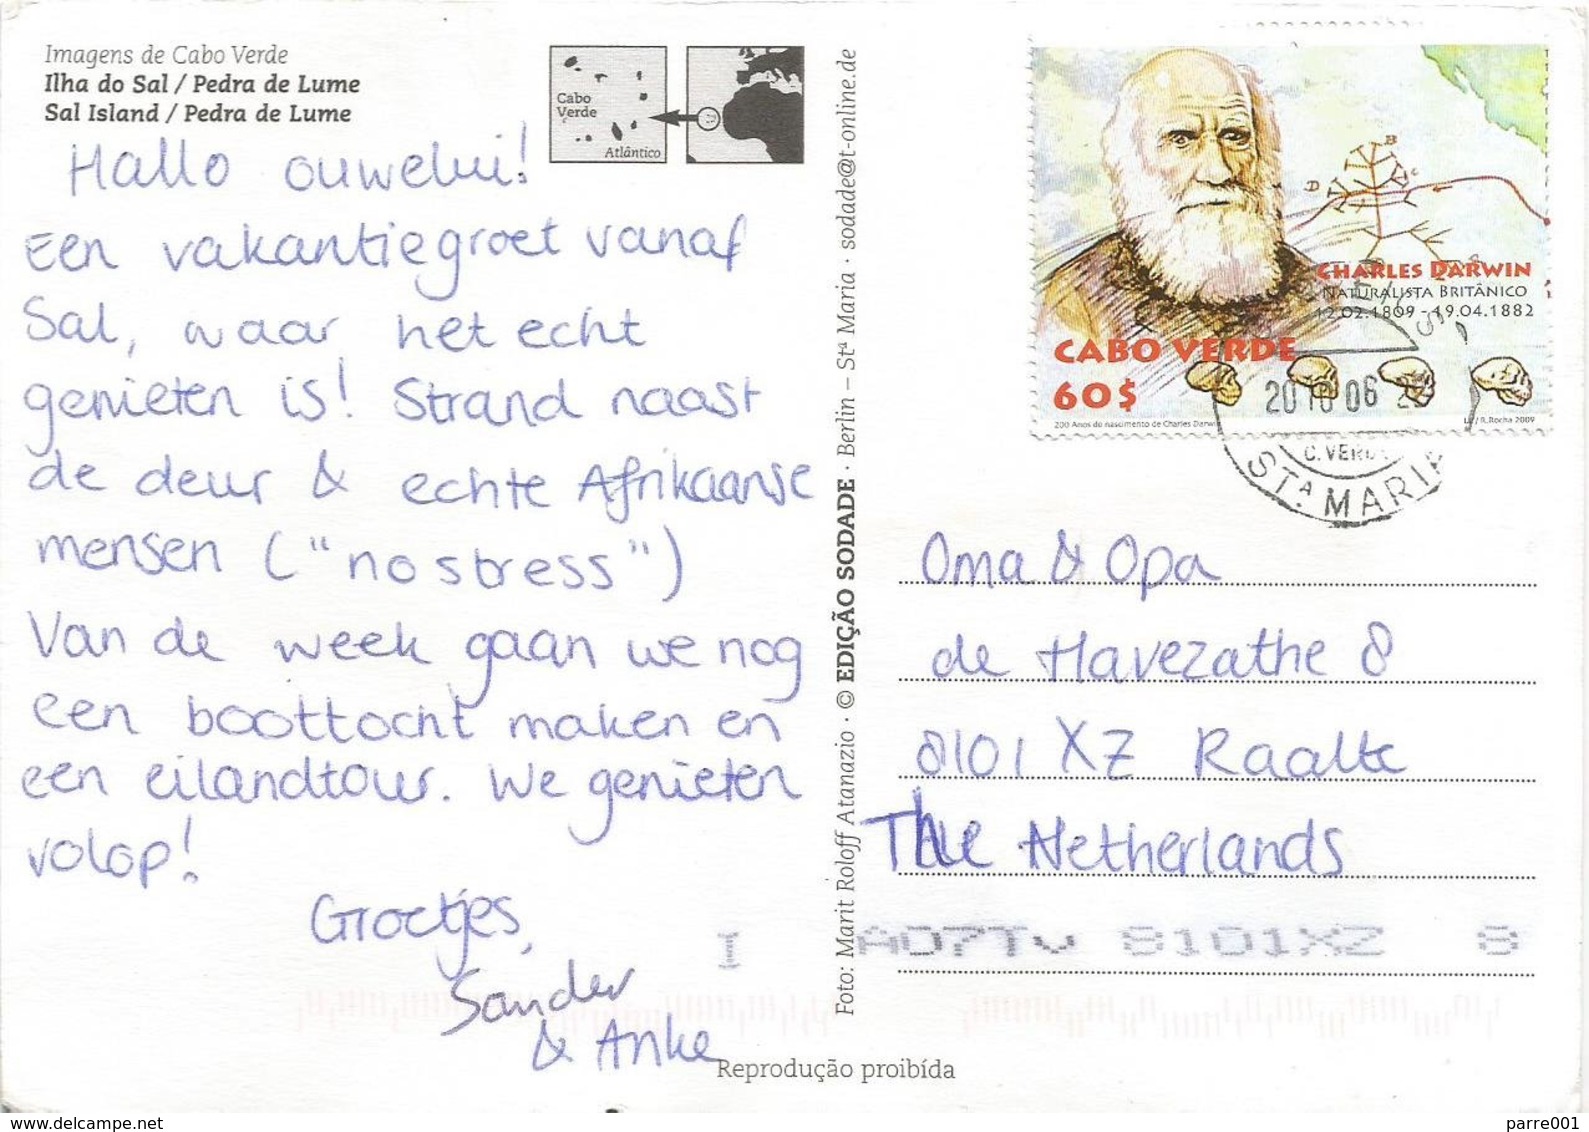 Imagens de Cabo Verde
Ilha do Sal / Pedra de Lume
Sal Island / Pedra de Lume
Cabo
Verde
Atlântico
Hallo ouwelui!
Een vakantiegroet vanaf
Sal, waar het echt
genieten is! Strand naast
de deur & echte Afrikaanse
mensen ("no stress")
Van de week gaan we nog
een boottocht maken en
een eilandtour. We genieten
volop!
Groetjes,
Sander
& Anke
Foto: Marit Roloff Atanazio · © EDIÇÃO SODADE · Berlin – Stª Maria · sodade@t-online.de
Reprodução proibída
A
B
C
D
CHARLES DARWIN
NATURALISTA BRITÂNICO
12.02.1809 - 19.04.1882
CABO VERDE
60$
200 Anos do nascimento de Charles Darwin
/ R.Rocha 2009
06
C.VERDE
STA MARIA
Oma & Opa
de Havezathe 8
8101 XZ Raalte
The Netherlands
I A07Tv 8101XZ 8
www.delcampe.net
parre001